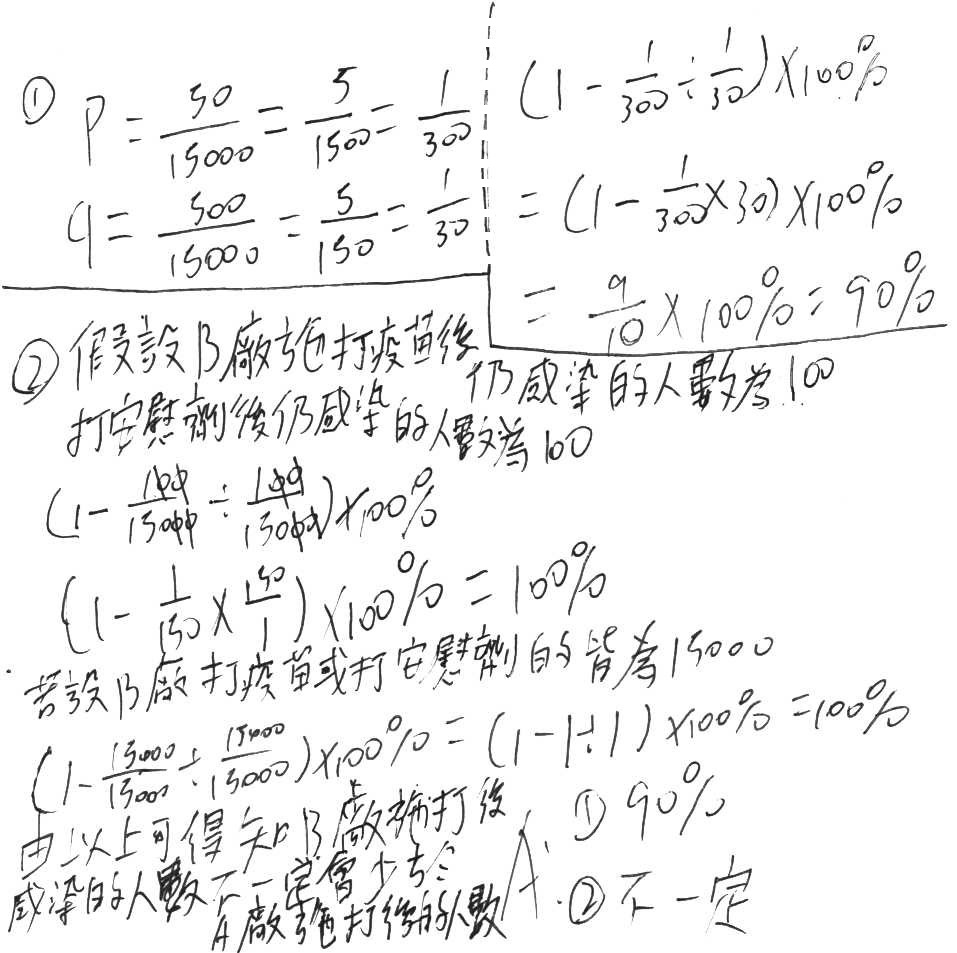 ① P = 50/15000 = 5/1500 = 1/300
q = 500/15000 = 5/150 = 1/30
(1 - 1/300 ÷ 1/30) × 100%
= (1 - 1/300 × 30) × 100%
= 9/10 × 100% = 90%
② 假設B廠施打疫苗後仍感染的人數為100
打安慰劑後仍感染的人數為100
(1 - 100/15000 ÷ 100/15000) × 100%
(1 - 1/150 × 150/1) × 100% = 100%
若設B廠打疫苗或打安慰劑的皆為15000
(1 - 15000/15000 ÷ 15000/15000) × 100% = (1 - 1÷1) × 100% = 100%
由以上可得知B廠施打後
感染的人數不一定會少於
A廠施打後的人數
A: ① 90%
② 不一定